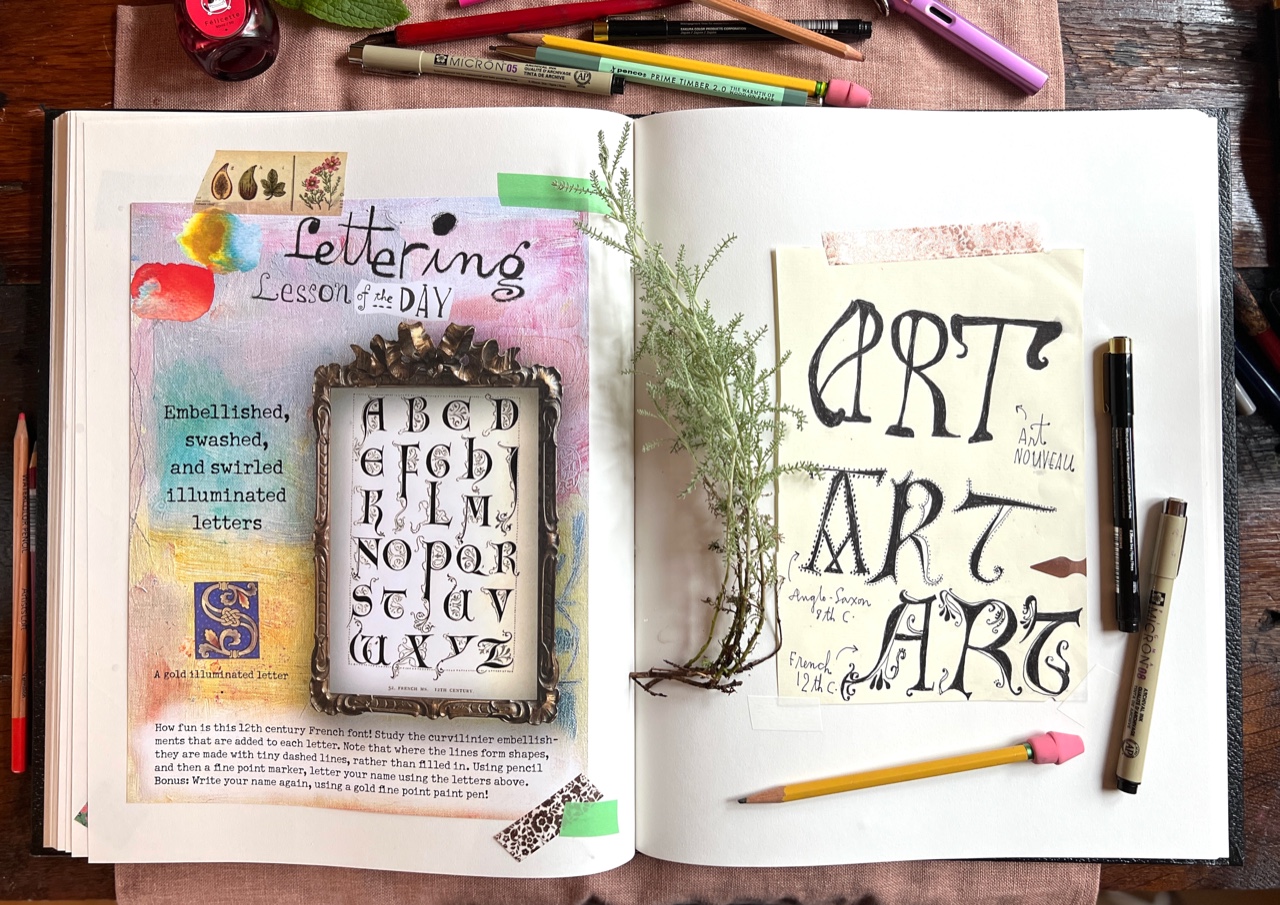 Felicette
MICRON 05
QUALITÉ D'ARCHIVAGE
TINTA DE ARCHIVE
AP
pencos PRIME TIMBER 2.0 THE WARMTH OF
Lettering
Lesson of the DAY
Embellished,
swashed,
and swirled
illuminated
letters
A B C D
E F G h J
K L M
N O P Q R
S T U V
W X Y Z
52. FRENCH MS. 12TH CENTURY.
S
A gold illuminated letter
How fun is this 12th century French font! Study the curvilinier embellish-
ments that are added to each letter. Note that where the lines form shapes,
they are made with tiny dashed lines, rather than filled in. Using pencil
and then a fine point marker, letter your name using the letters above.
Bonus: Write your name again, using a gold fine point paint pen!
ART
Art
NOUVEAU
ART
Anglo-Saxon
8th C.
ART
French
12th C.
MICRON 08
AP